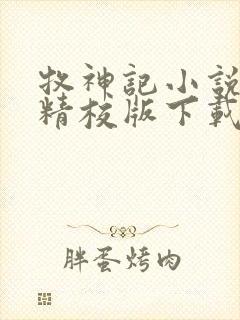 牧神記小說
精校版下載
胖蛋烤肉